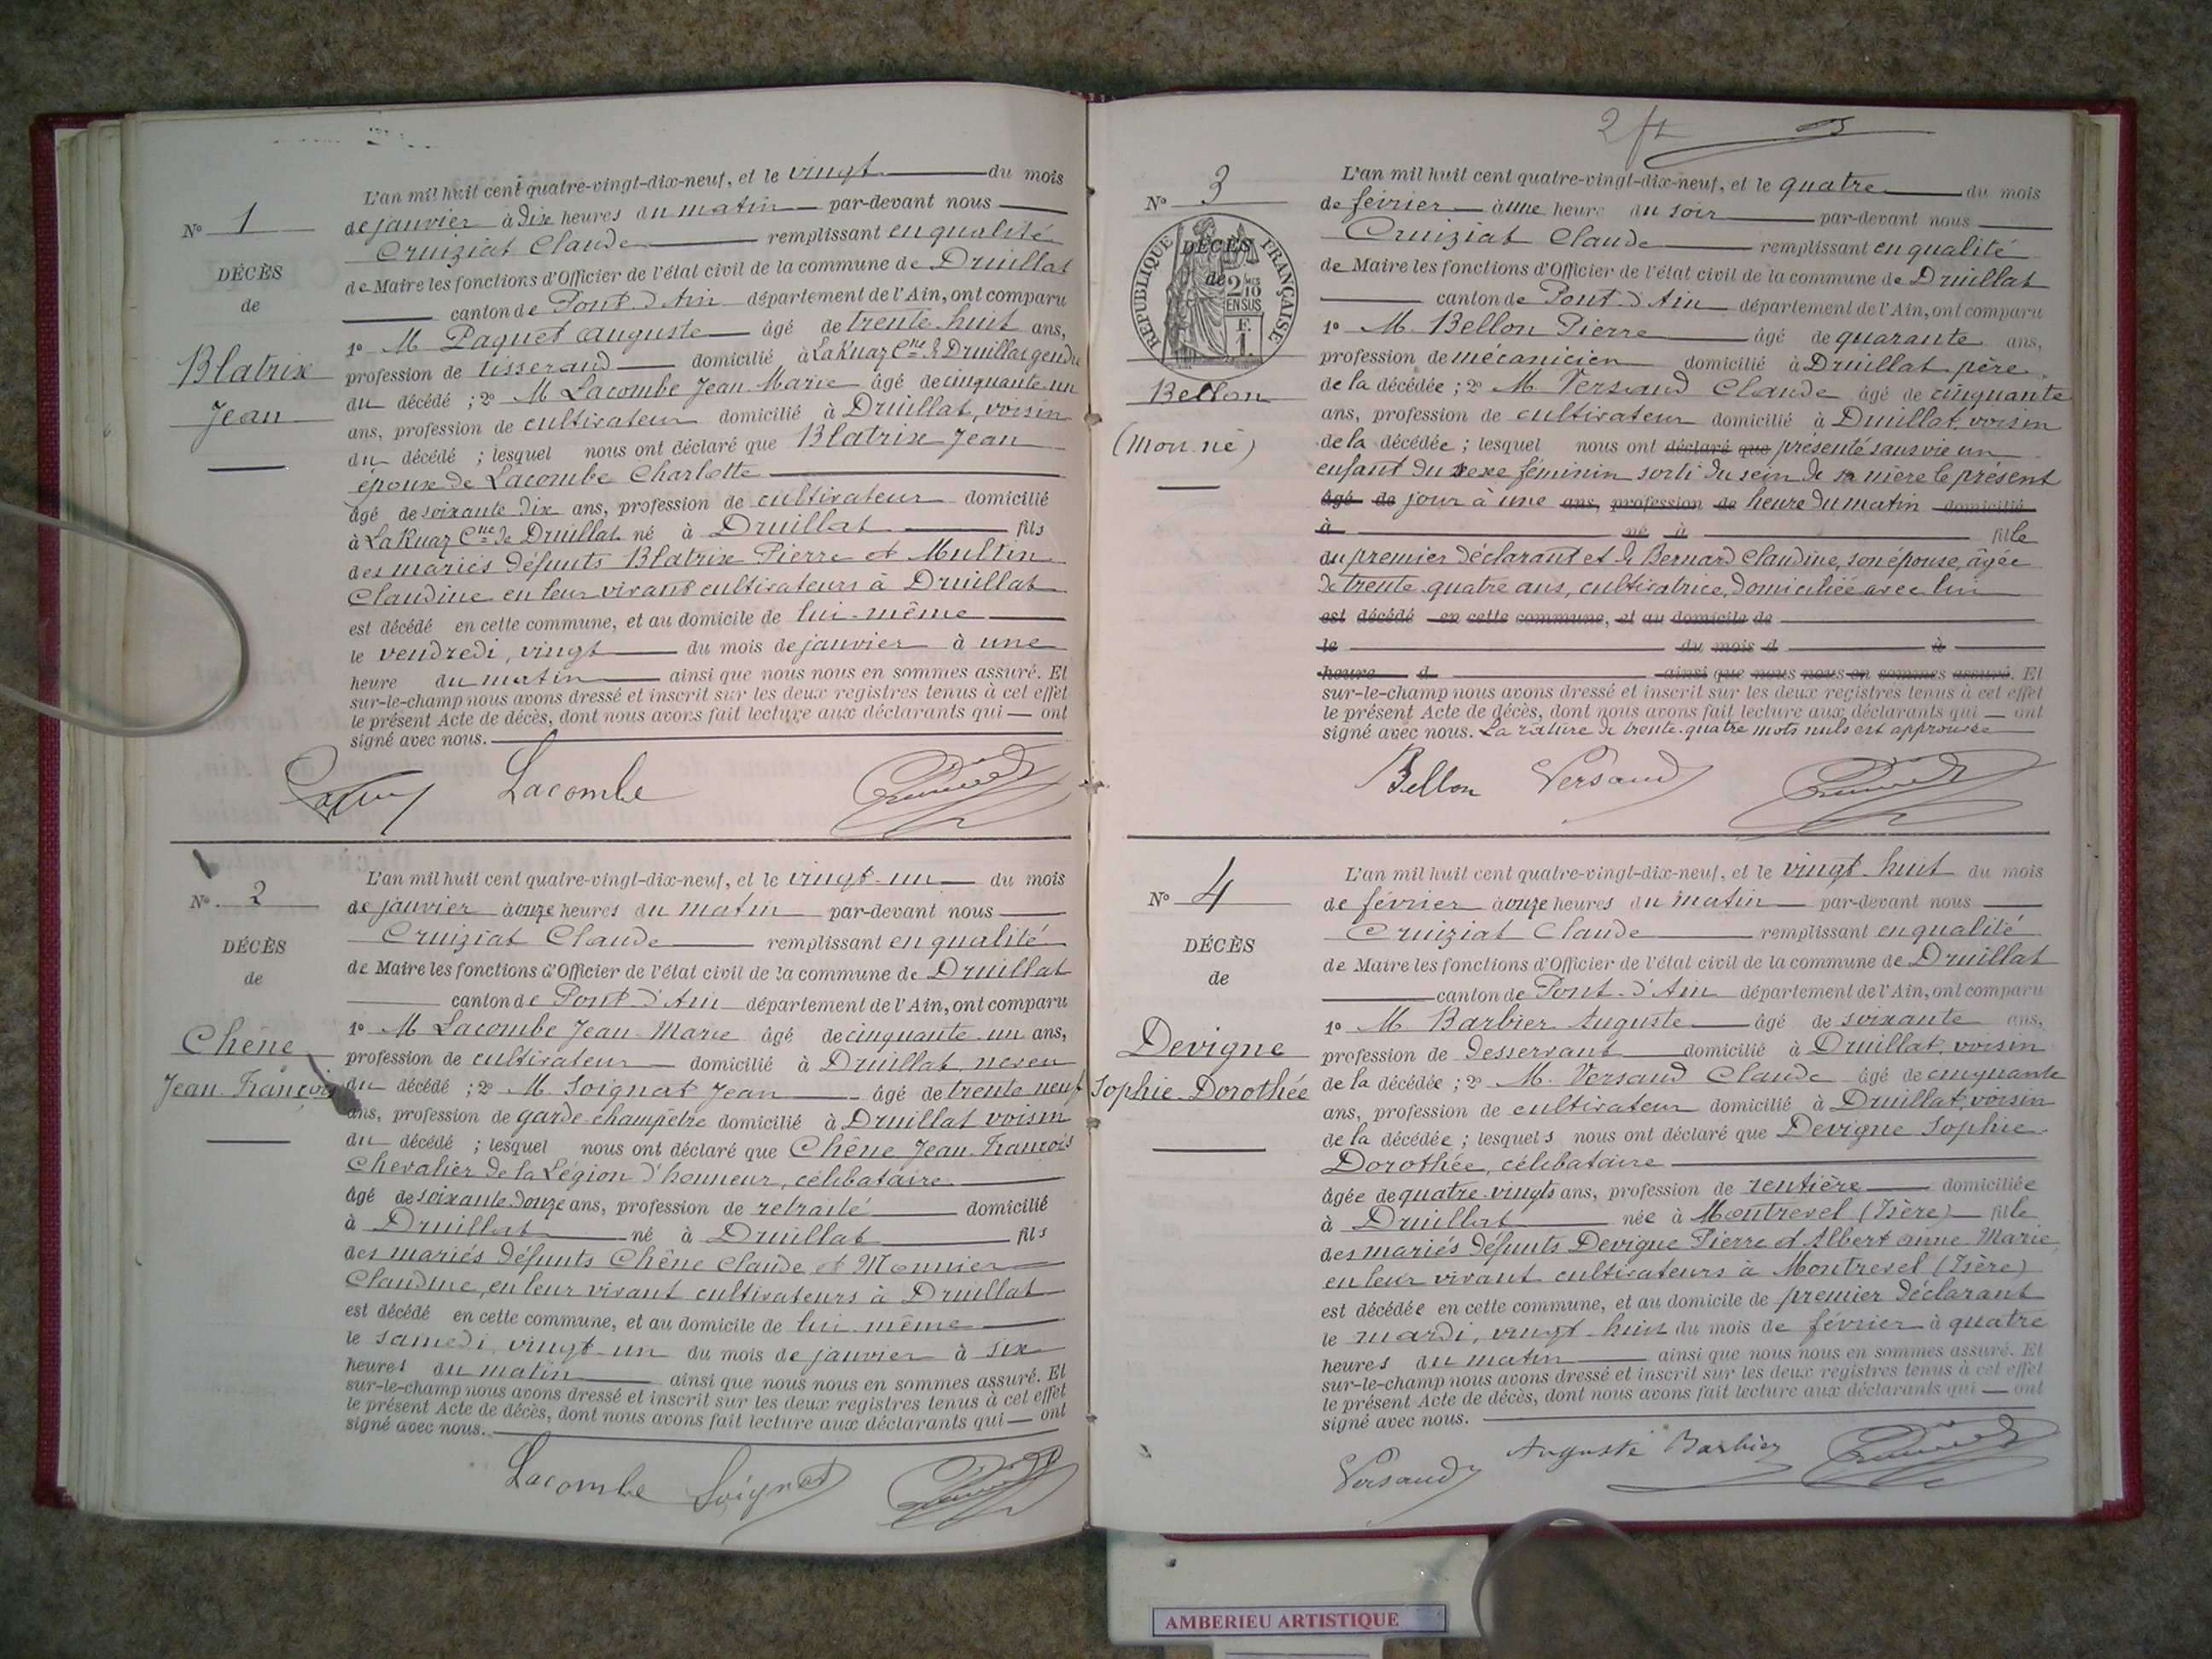 L'an mil huit cent quatre-vingt-dix-neuf, et le vingt du mois
de janvier à dix heures du matin par-devant nous
Cruiziat Claude remplissant en qualité
de Maire les fonctions d'Officier de l'état civil de la commune de Druillat
canton de Pont d'Ain département de l'Ain, ont comparu
1o M Paquet Auguste âgé de trente huit ans,
profession de tisserand domicilié à La Ruaz Cne de Druillat gendre
du décédé ; 2o M Lacombe Jean Marie âgé de cinquante un
ans, profession de cultivateur domicilié à Druillat, voisin
du décédé ; lesquel nous ont déclaré que Blatrix Jean
époux de Lacombe Charlotte
âgé de soixante dix ans, profession de cultivateur domicilié
à La Ruaz Cne de Druillat né à Druillat fils
des mariés défunts Blatrix Pierre et Multin
Claudine en leur vivant cultivateurs à Druillat
est décédé en cette commune, et au domicile de lui-même
le vendredi, vingt du mois de janvier à une
heure du matin ainsi que nous nous en sommes assuré. Et
sur-le-champ nous avons dressé et inscrit sur les deux registres tenus à cet effet
le présent Acte de décès, dont nous avons fait lecture aux déclarants qui ont
signé avec nous.
No 1
DÉCÈS
de
Blatrix
Jean
Lacombe
L'an mil huit cent quatre-vingt-dix-neuf, et le vingt-un du mois
de janvier à onze heures du matin par-devant nous
Cruiziat Claude remplissant en qualité
de Maire les fonctions d'Officier de l'état civil de la commune de Druillat
canton de Pont d'Ain département de l'Ain, ont comparu
1o M Lacombe Jean Marie âgé de cinquante un ans,
profession de cultivateur domicilié à Druillat neveu
du décédé ; 2o M. Soignat Jean âgé de trente neuf
ans, profession de garde-champêtre domicilié à Druillat voisin
du décédé ; lesquel nous ont déclaré que Chêne Jean François
Chevalier de la Légion d'honneur, célibataire
âgé de soixante douze ans, profession de retraité domicilié
à Druillat né à Druillat fils
des mariés défunts Chêne Claude et Monnier
Claudine, en leur vivant cultivateurs à Druillat
est décédé en cette commune, et au domicile de lui-même
le samedi, vingt-un du mois de janvier à six
heures du matin ainsi que nous nous en sommes assuré. Et
sur-le-champ nous avons dressé et inscrit sur les deux registres tenus à cet effet
le présent Acte de décès, dont nous avons fait lecture aux déclarants qui ont
signé avec nous.
No 2
DÉCÈS
de
Chêne
Jean François
Lacombe Soignat
2 ft
L'an mil huit cent quatre-vingt-dix-neuf, et le quatre du mois
de février à une heure du soir par-devant nous
Cruiziat Claude remplissant en qualité
de Maire les fonctions d'Officier de l'état civil de la commune de Druillat
canton de Pont-d'Ain département de l'Ain, ont comparu
1o M. Bellon Pierre âgé de quarante ans,
profession de mécanicien domicilié à Druillat père
de la décédée ; 2o M Versaud Claude âgé de cinquante
ans, profession de cultivateur domicilié à Druillat voisin
de la décédée ; lesquel nous ont déclaré que présenté sans vie un
enfant du sexe féminin sorti du sein de sa mère le présent
âgé de jour à une ans, profession de heure du matin domicilié
à né à fille
du premier déclarant et de Bernard Claudine, son épouse, âgée
de trente-quatre ans, cultivatrice, domiciliée avec lui
est décédé en cette commune, et au domicile de
le du mois d à
heure d ainsi que nous nous en sommes assuré. Et
sur-le-champ nous avons dressé et inscrit sur les deux registres tenus à cet effet
le présent Acte de décès, dont nous avons fait lecture aux déclarants qui ont
signé avec nous. La rature de trente-quatre mots nuls est approuvée
No 3
RÉPUBLIQUE FRANÇAISE
DÉCÈS
de
2/10
EN SUS
F.
1.
Bellon
(Mort-né)
Bellon Versaud
L'an mil huit cent quatre-vingt-dix-neuf, et le vingt-huit du mois
de février à onze heures du matin par-devant nous
Cruiziat Claude remplissant en qualité
de Maire les fonctions d'Officier de l'état civil de la commune de Druillat
canton de Pont-d'Ain département de l'Ain, ont comparu
1o M Barbier Auguste âgé de soixante ans,
profession de desservant domicilié à Druillat, voisin
de la décédée ; 2o M. Versaud Claude âgé de cinquante
ans, profession de cultivateur domicilié à Druillat, voisin
de la décédée ; lesquels nous ont déclaré que Devigne Sophie
Dorothée, célibataire
âgée de quatre-vingts ans, profession de rentière domiciliée
à Druillat née à Montrevel (Isère) fille
des mariés défunts Devigne Pierre et Albert Anne Marie
en leur vivant cultivateurs à Montrevel (Isère)
est décédée en cette commune, et au domicile de premier déclarant
le mardi, vingt-huit du mois de février à quatre
heures du matin ainsi que nous nous en sommes assuré. Et
sur-le-champ nous avons dressé et inscrit sur les deux registres tenus à cet effet
le présent Acte de décès, dont nous avons fait lecture aux déclarants qui ont
signé avec nous.
No 4
DÉCÈS
de
Devigne
Sophie Dorothée
Versaud Auguste Barbier
AMBERIEU ARTISTIQUE